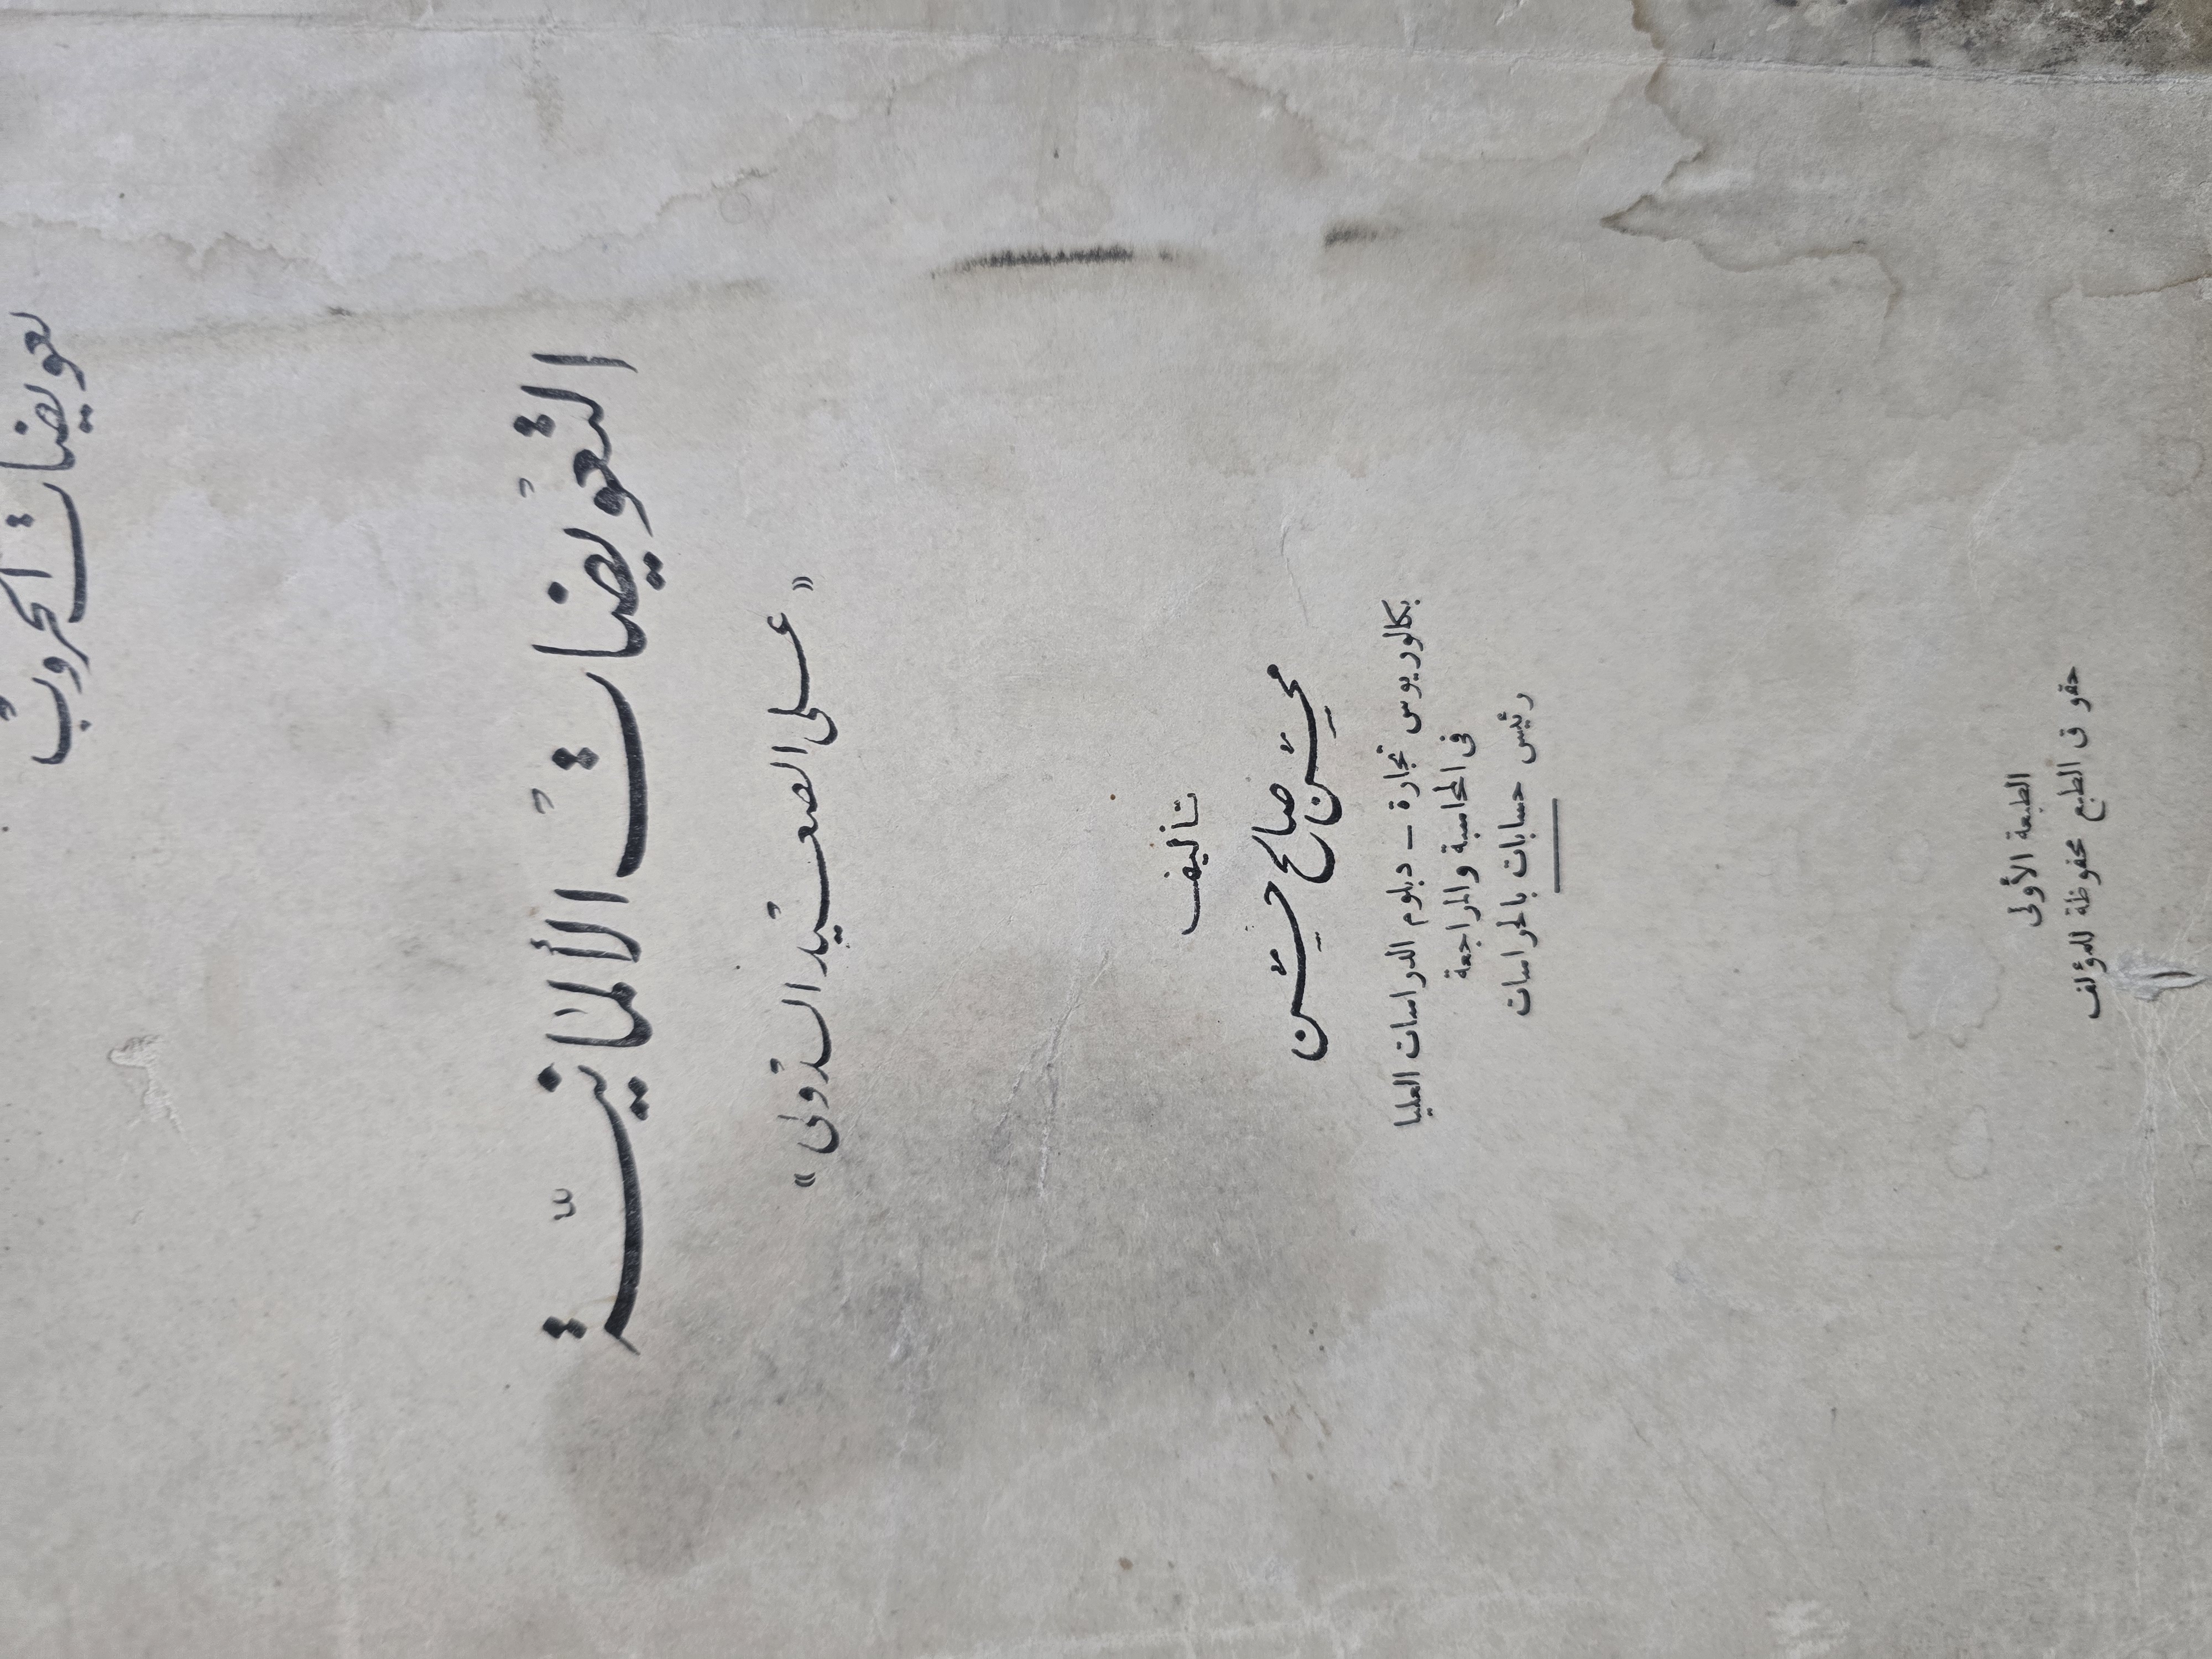 تعويضات الحروب
التعويضات الألمانية
«على الصعيد الدولى»
تأليف
محسن صالح حسن
بكالوريوس تجارة – دبلوم الدراسات العليا
فى المحاسبة والمراجعة
رئيس حسابات بالحراسات
الطبعة الأولى
حقوق الطبع محفوظة للمؤلف